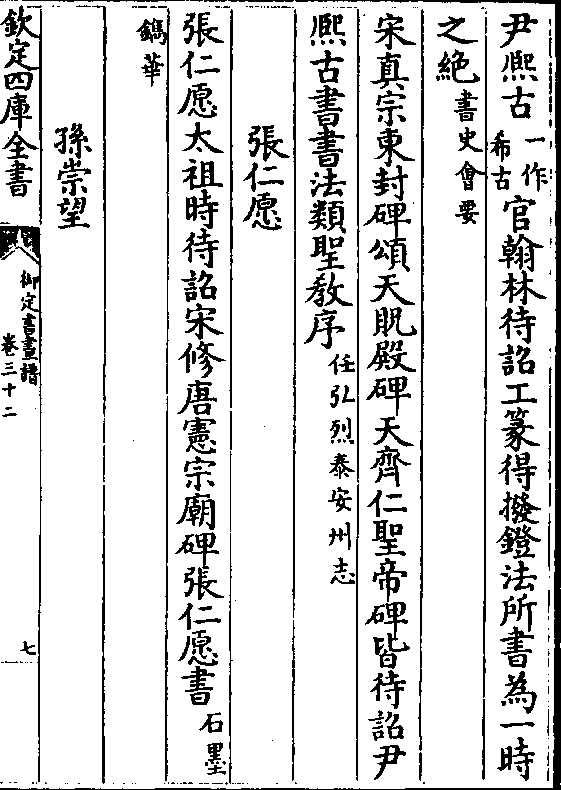 尹熙古一作希古官翰林待詔工篆得撥鐙法所書為一時
之絶書史會要
宋真宗東封碑頌天貺殿碑天齊仁聖帝碑皆待詔尹
熙古書書法類聖教序任弘烈泰安州志
張仁愿
張仁愿太祖時待詔宋修唐憲宗廟碑張仁愿書石墨
鐫華
孫崇望
欽定四庫全書
御定書畫譜
卷三十二
七